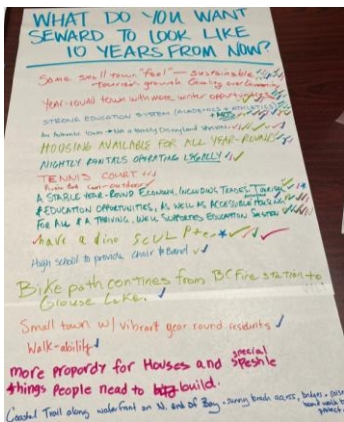 WHAT DO YOU WANT
SEWARD TO LOOK LIKE
10 YEARS FROM NOW?
Same small town "feel" — sustainable
tourism growth Quality over
Year-round town with more winter opportunities
STRONG EDUCATION SYSTEM (ACADEMICS + ATHLETICS)
+ ARTS
An Authentic town Not a Disneyland
HOUSING AVAILABLE FOR ALL YEAR-ROUND
NIGHTLY RENTALS OPERATING LEGALLY
TENNIS COURT
A STABLE YEAR ROUND ECONOMY, INCLUDING TRADES, TOURISM
& EDUCATION OPPORTUNITIES, AS WELL AS ACCESSIBLE HOUSING
FOR ALL & A THRIVING, WELL SUPPORTED EDUCATION SYSTEM
have a dino
High school to provide choir & Band
Bike path contines from BC Fire station to
Grouse Lake.
Small town w/ vibrant year round residents
Walk-ability
more propordy for Houses and special
things People nead to build.
Coastal Trail along waterfront on N. end of Bay